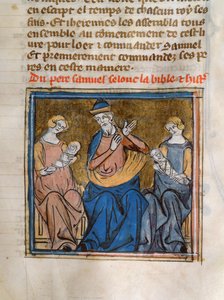 en escript le temps de chascun roy ses
fans. Et iherennes les assembla tous
ensamble au commencement de cest
liure pour loer ⁊ commander Samuel
Et premierement commander ses pe
res en ceste maniere.
Du pere samuel selonc la bible ⁊